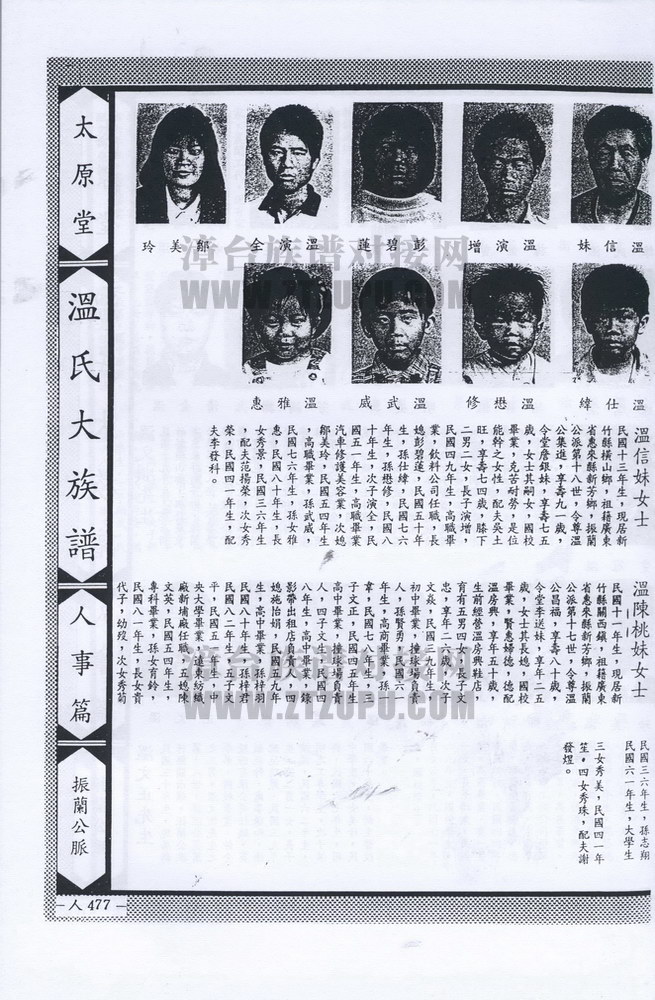 溫信妹
溫演增
彭碧蓮
溫演全
鄒美玲
溫仕緯
溫懋修
溫武威
溫雅惠
溫信妹女士
民國十三年生，現居新
竹縣橫山鄉，祖籍廣東
省惠來縣新芳鄉，振蘭
公派第十八世，令尊溫
公集進，享壽九一歲，
令堂詹銀妹，享壽七五
歲，女士其嗣女，國校
畢業，克苦耐勞，是位
能幹之女性，配夫吳土
旺，享壽七四歲，膝下
二男二女，長子演增，
民國四九年生，高職畢
業，飲料公司任職，長
媳彭碧蓮，民國五十年
生，孫仕緯，民國七六
年生，孫懋修，民國八
十年生，次子演全，民
國五一年生，高職畢業
汽車修護美容業，次媳
鄒美玲，民國五四年生
，高職畢業，孫武威，
民國七六年生，孫女雅
惠，民國八十年生，長
女秀景，民國三六年生
，配夫范揚榮，次女秀
榮，民國四一年生，配
夫李發科。
溫陳桃妹女士
民國十一年生，現居新
竹縣關西鎮，祖籍廣東
省惠來縣新芳鄉，振蘭
公派第十七世，令尊溫
公昌福，享壽八十歲，
令堂李送妹，享年二五
歲，女士其長媳，國校
畢業，賢惠婦德，德配
溫房興，享年五十歲，
生前經營溫房興鞋店，
育有五男四女，長子文
忠，享年二六歲，次子
文焱，民國三九年生，
初中畢業，撞球場負責
人，孫賢勇，民國六一
年生，高商畢業，孫
韋，民國七八年生，三
子文正，民國四五年生
高中畢業，撞球場負責
人，四子文生，民國四
八年生，高中畢業，錄
影帶出租店負責人，四
媳施怡娟，民國五九年
生，高中畢業，孫梓羽
民國八十年生，孫梓君
民國八二年生，五子文
平，民國五一年生，中
央大學畢業，遠東紡織
廠新埔廠任職，五媳陳
文英，民國五四年生，
專科畢業，孫女育鈴，
民國八一年生，長女貴
代子，幼歿，次女秀菊
民國三六年生，孫志翔
民國六一年生，大學生
三女秀美，民國四一年
笙，四女秀珠，配夫謝
發焜。
太原堂
溫氏大族譜
人事篇
振蘭公脈
人 477
漳台族谱对接网
WWW.ZTZUPU.COM
漳台族谱对接网
WWW.ZTZUPU.COM